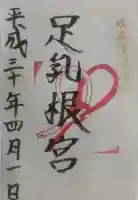 足乳根宮
平成三十年四月一日